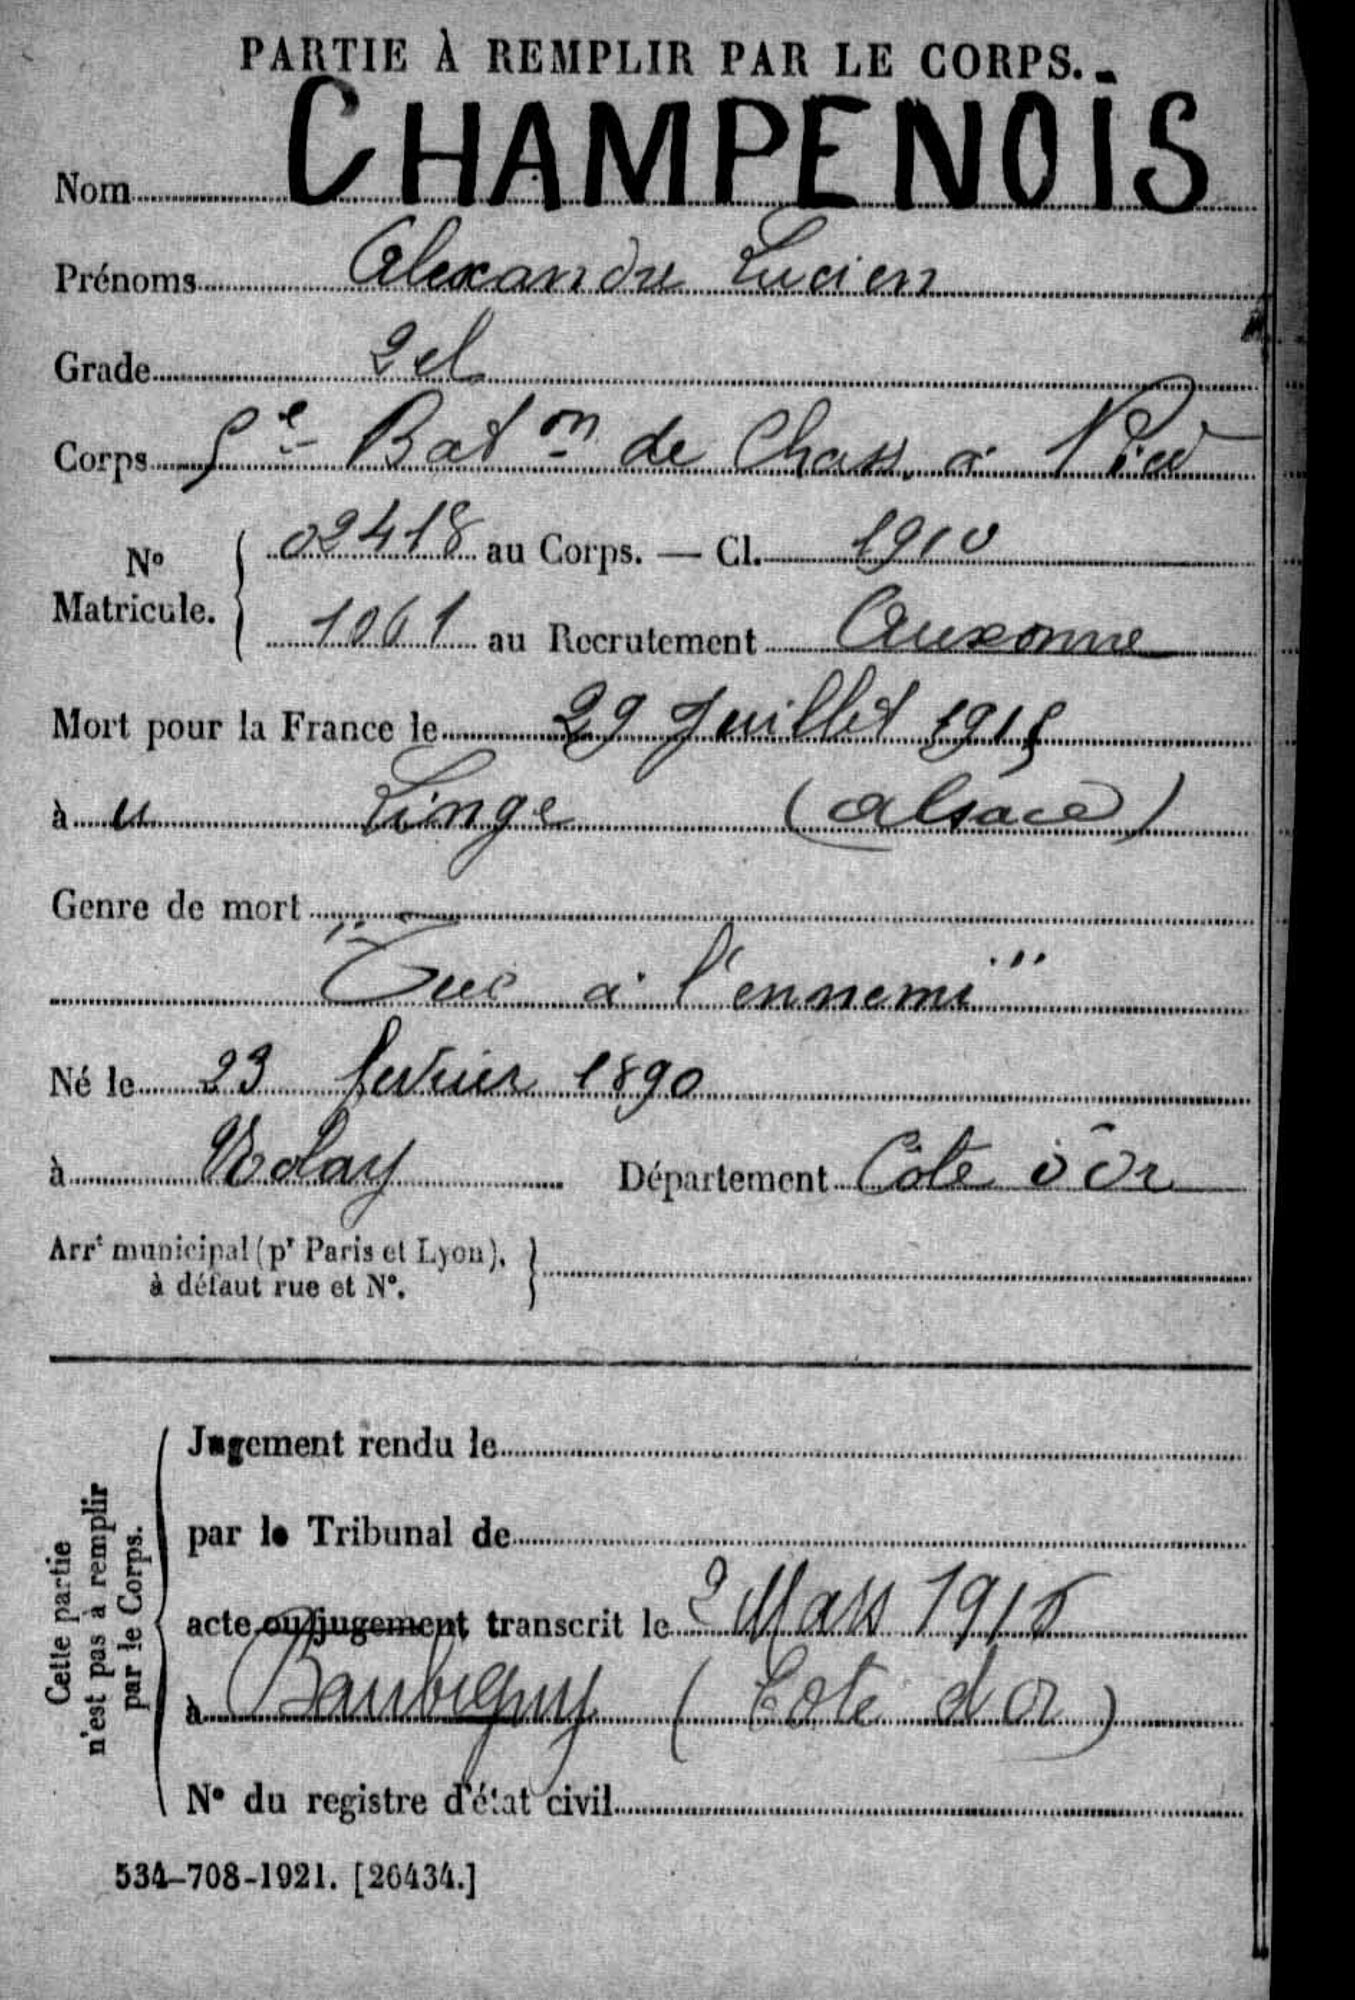 PARTIE À REMPLIR PAR LE CORPS.
Nom CHAMPENOIS
Prénoms Alexandre Lucien
Grade 2 cl
Corps 5e Baton de Chass. à Pied
No Matricule. 02418 au Corps. — Cl. 1910
1061 au Recrutement Auxonne
Mort pour la France le 29 Juillet 1915
à u Linge (Alsace)
Genre de mort
"Tué à l'ennemi"
Né le 23 fevrier 1890
à Nolay Département Côte d'Or
Arrt municipal (pr Paris et Lyon),
à défaut rue et No.
Cette partie
n'est pas à remplir
par le Corps.
Jugement rendu le
par le Tribunal de
acte ou jugement transcrit le 2 Mars 1916
à Baubigny (Cote d'Or)
No du registre d'état civil
534-708-1921. [26434.]